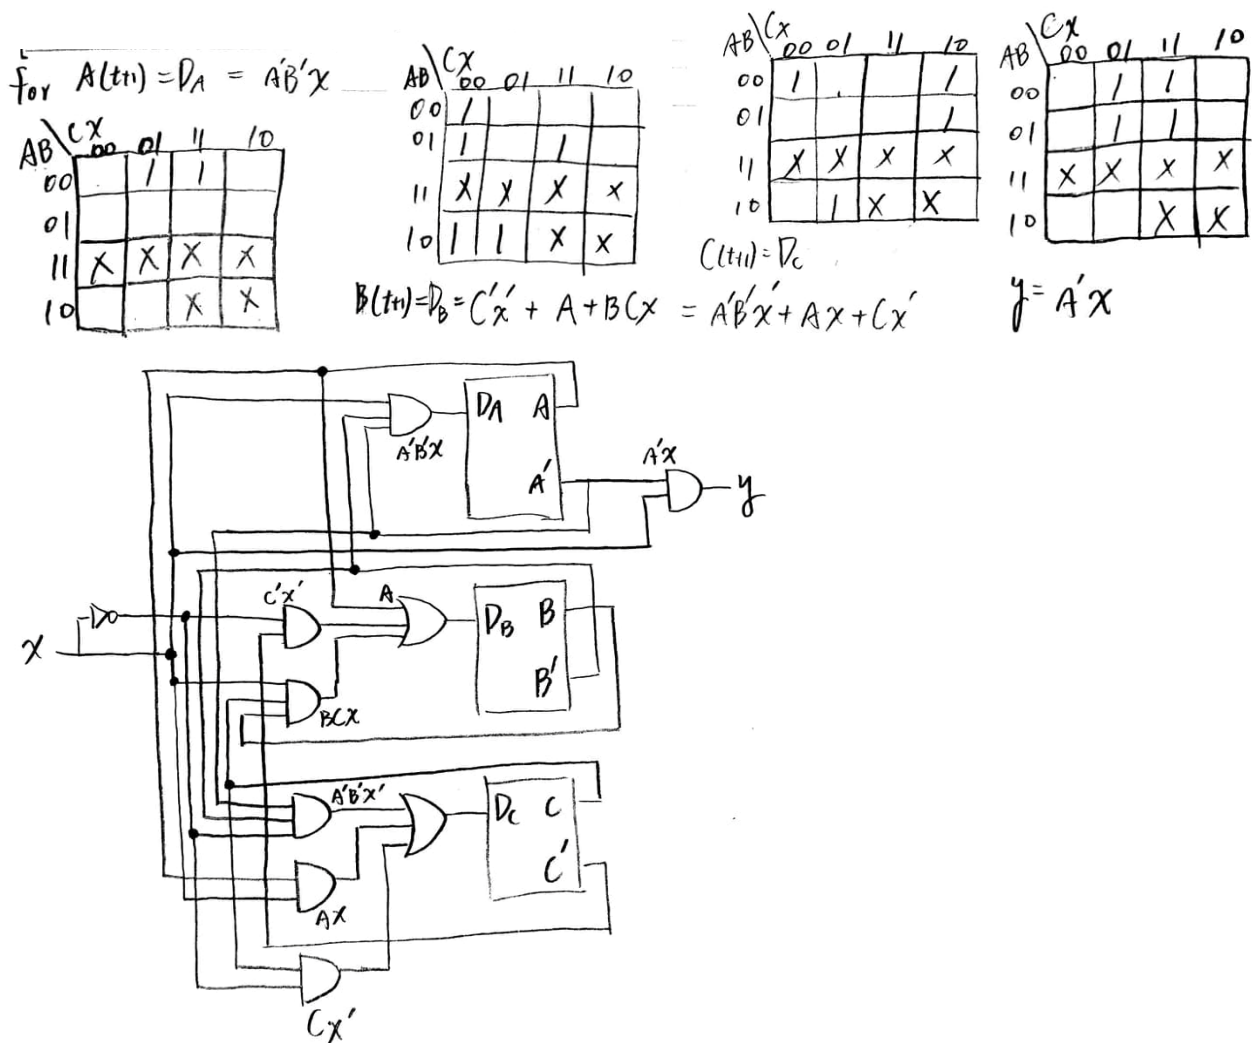 for A(t+1) = DA = A'B'x
AB\Cx 00 01 11 10
00 1 1
01
11 X X X X
10 X X
AB\Cx 00 01 11 10
00 1
01 1 1
11 X X X X
10 1 1 X X
B(t+1) = DB = C'x' + A + BCx
AB\Cx 00 01 11 10
00 1 1
01 1
11 X X X X
10 1 X X
C(t+1) = Dc
= A'B'x' + Ax + Cx'
AB\Cx 00 01 11 10
00 1 1
01 1 1
11 X X X X
10 X X
y = A'x
DA A
A'
A'B'x
A'x
y
x
C'x'
A
DB B
B'
BCx
A'B'x'
Dc C
C'
Ax
Cx'